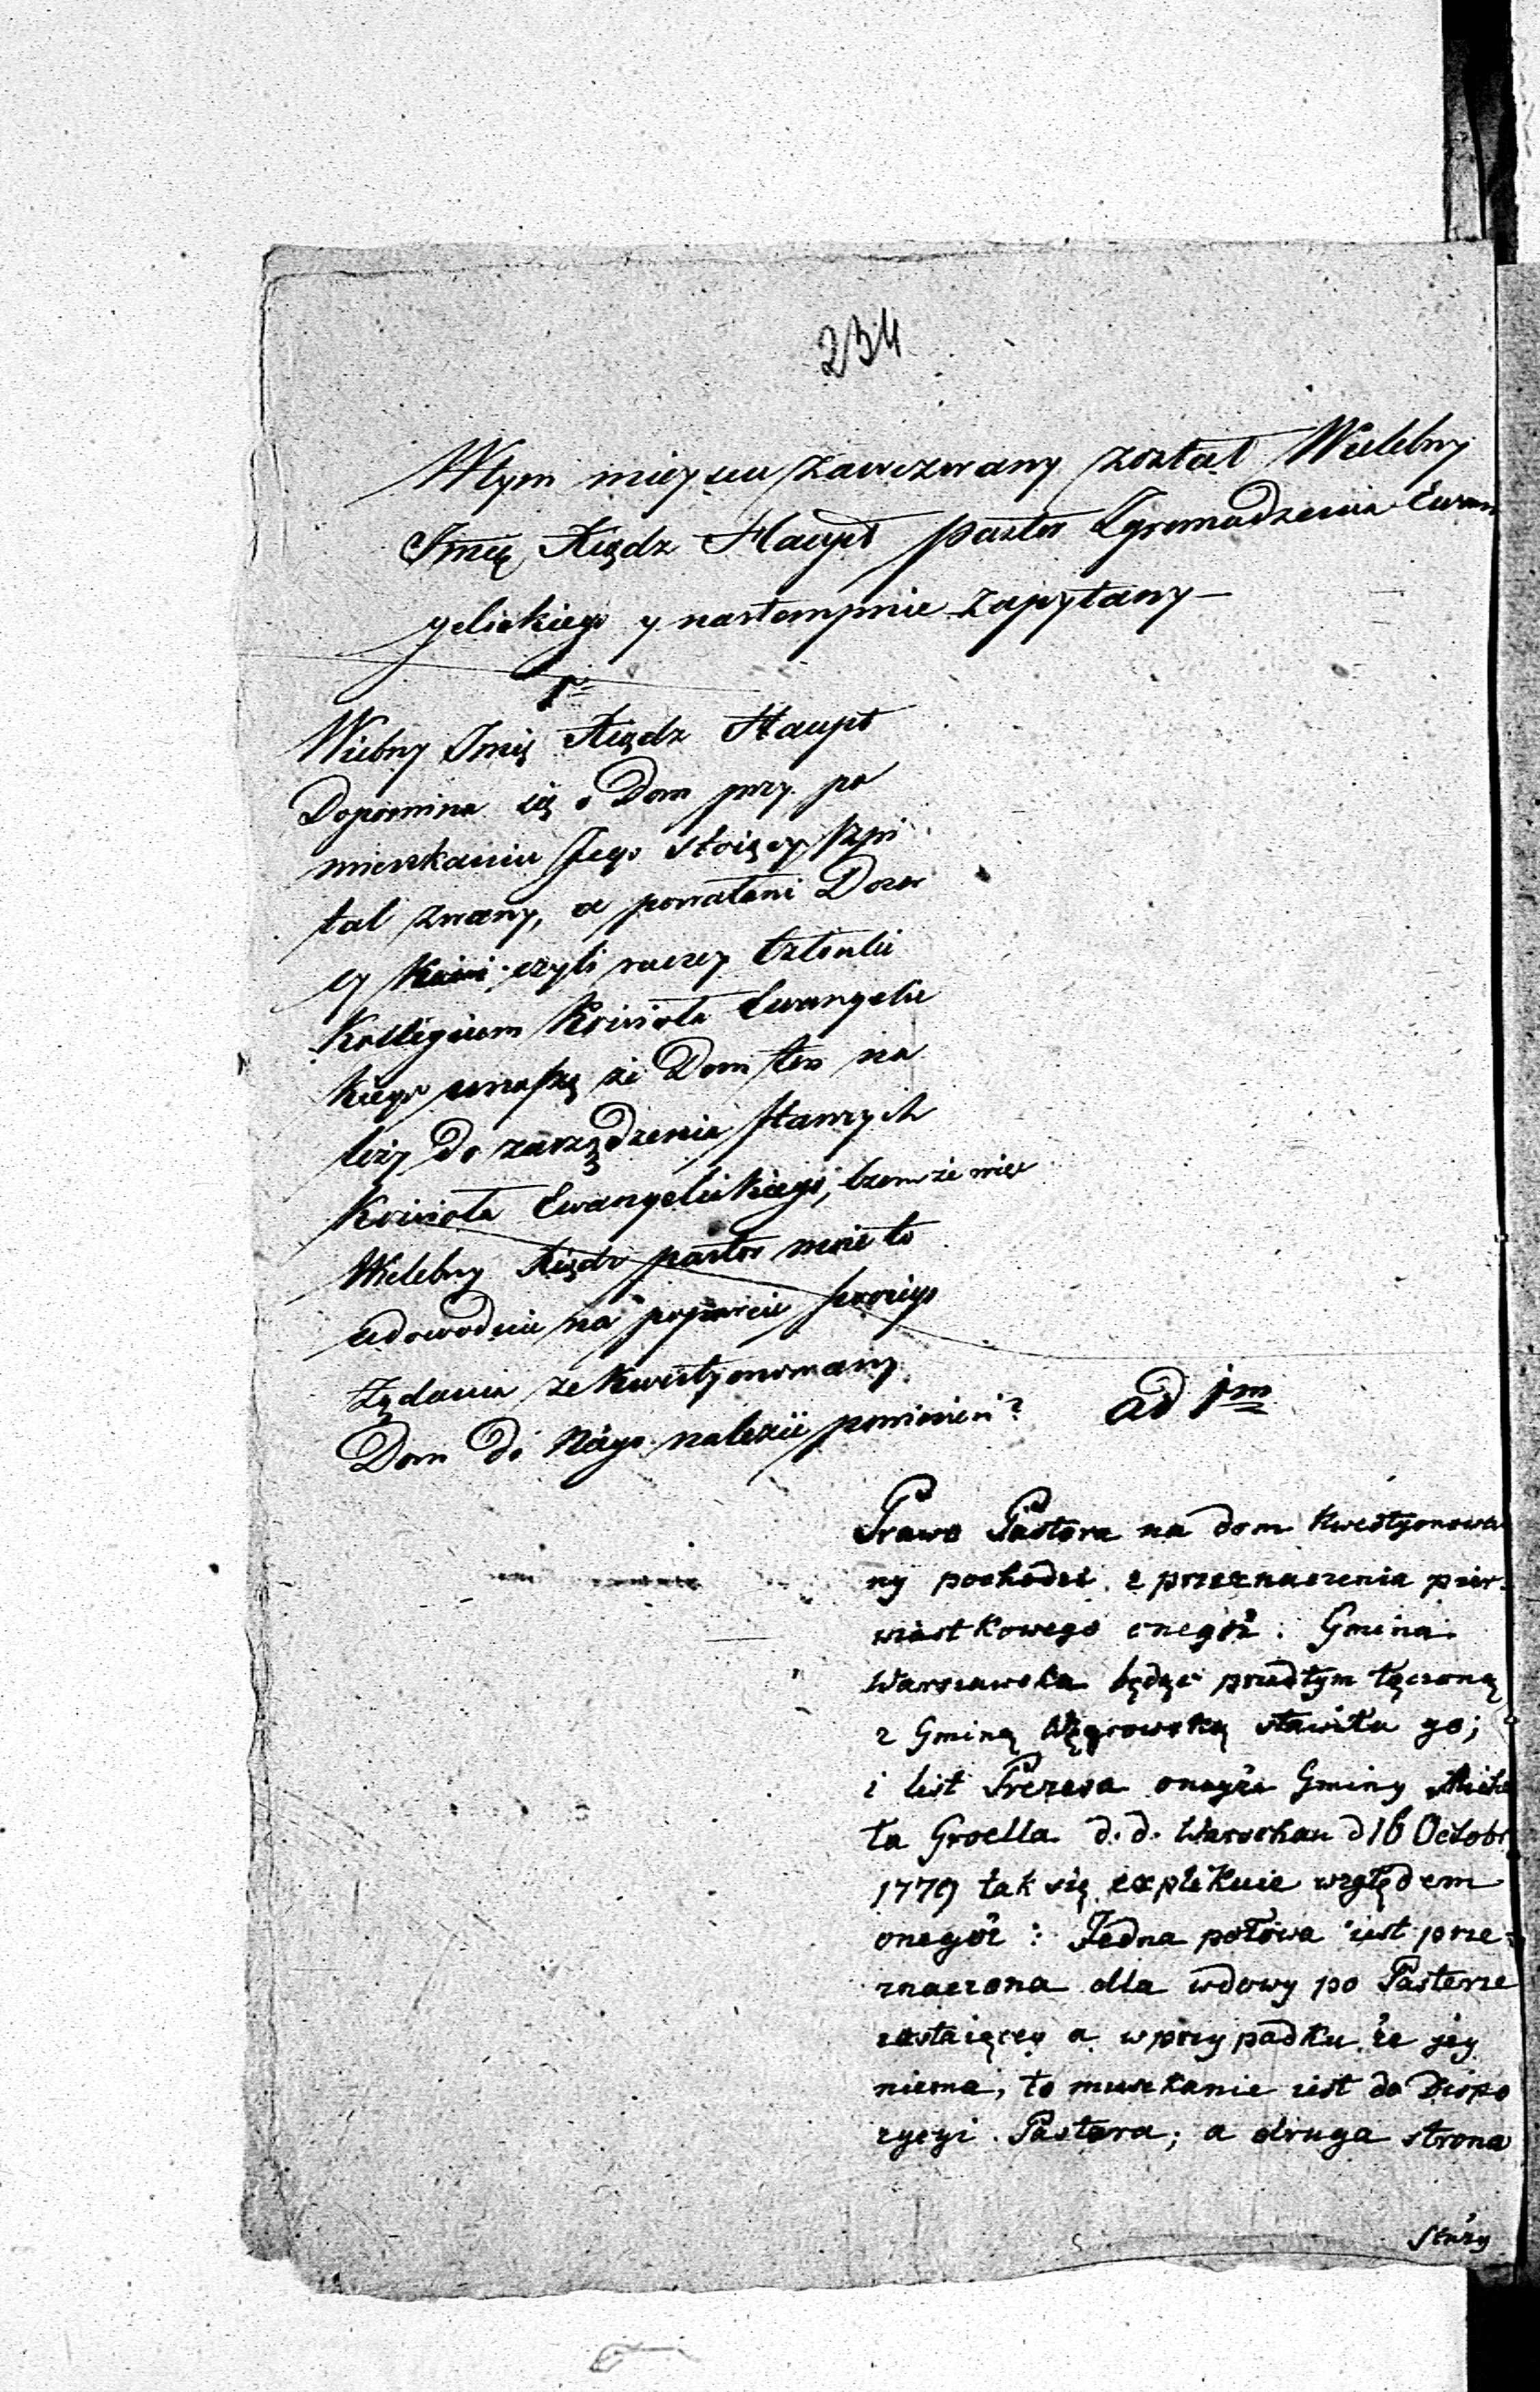 234
W tym mieyscu zawezwany został Wielebny
Jmcę Xiądz Haupt pastor Zgromadzenia Ewan
gelickiego y nastempnie zapytany—
1º
Wielebny Jmię Xiądz Haupt
Dopomina się o Dom przy po
mieszkaniu Jego stoiący Szpi
tal zwany, a powołani Dozor
cy czyli raczey Członki
Kollegium Kościoła Ewangelic
kiego że Dom ten na
leży do zarządzenia Starszych
Kościoła Ewangelickiego, czem że więc
Wielebny Xiądz pastor może to
udowodnić na poparcie swoiego
Żądania że kwestyonowany
Dom do Niego należeć powinien?
ad 1m
Prawo Pastora na dom kwestyonowa
ny pochodzi z przeznaczenia pier-
wiastkowego onegóż. Gmina
Warszawska będąc przedtym łączoną
z Gminą Węgrowską stawiła go;
i list Prezesa oneyże Gminy Micha
ła Groella d. d. Warschau d 16 Octobr
1779 tak się explikuie względem
onegóż: Jedna połowa iest prze-
znaczona dla wdowy po Pasterze
zostaiącey a w przypadku że jey
niema, to mieszkanie iest do Dispo
zycyi Pastora; a druga strona
służy